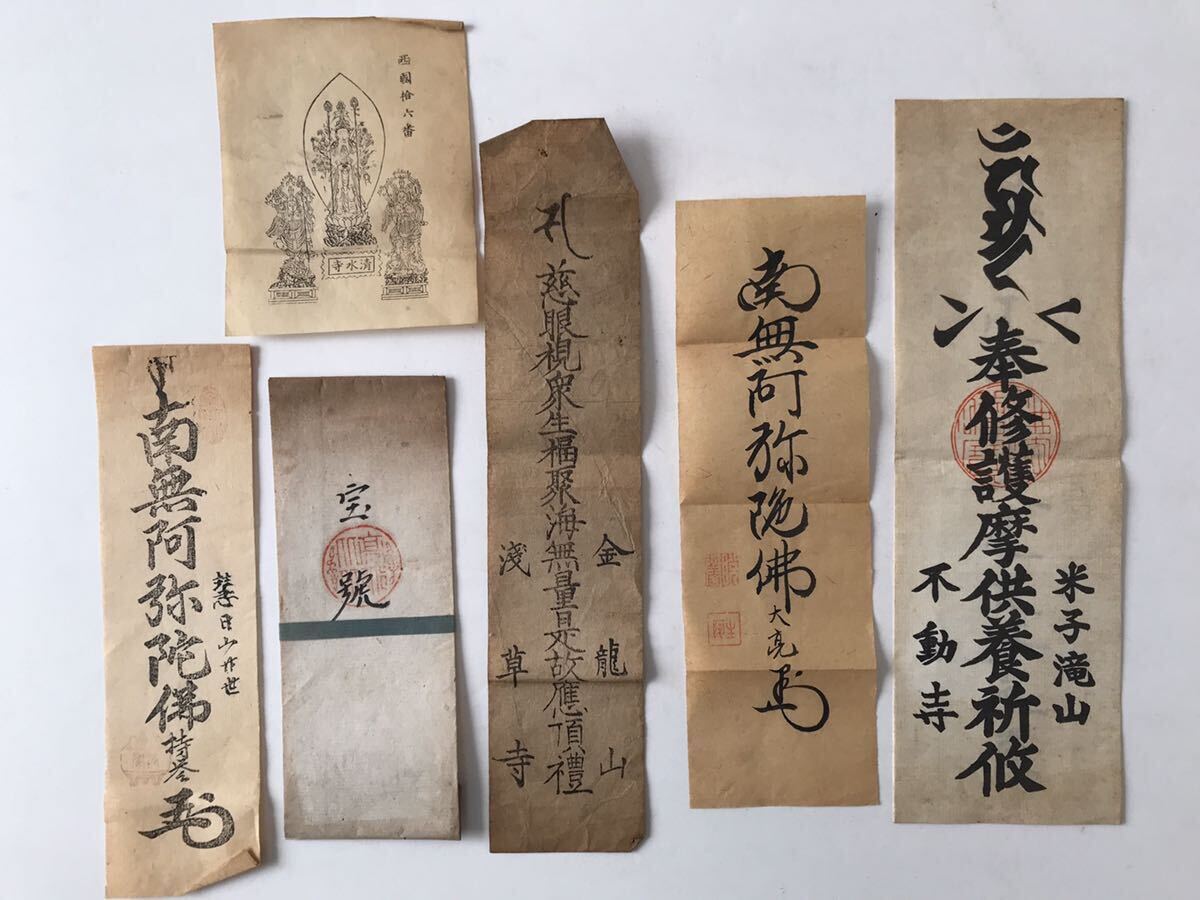 西國拾六番
清水寺
南無阿弥陀佛
宝號
慈眼視衆生福聚海無量是故應頂禮
金龍山
淺草寺
南無阿弥陀佛
大亮
奉修護摩供養祈攸
米子滝山
不動寺